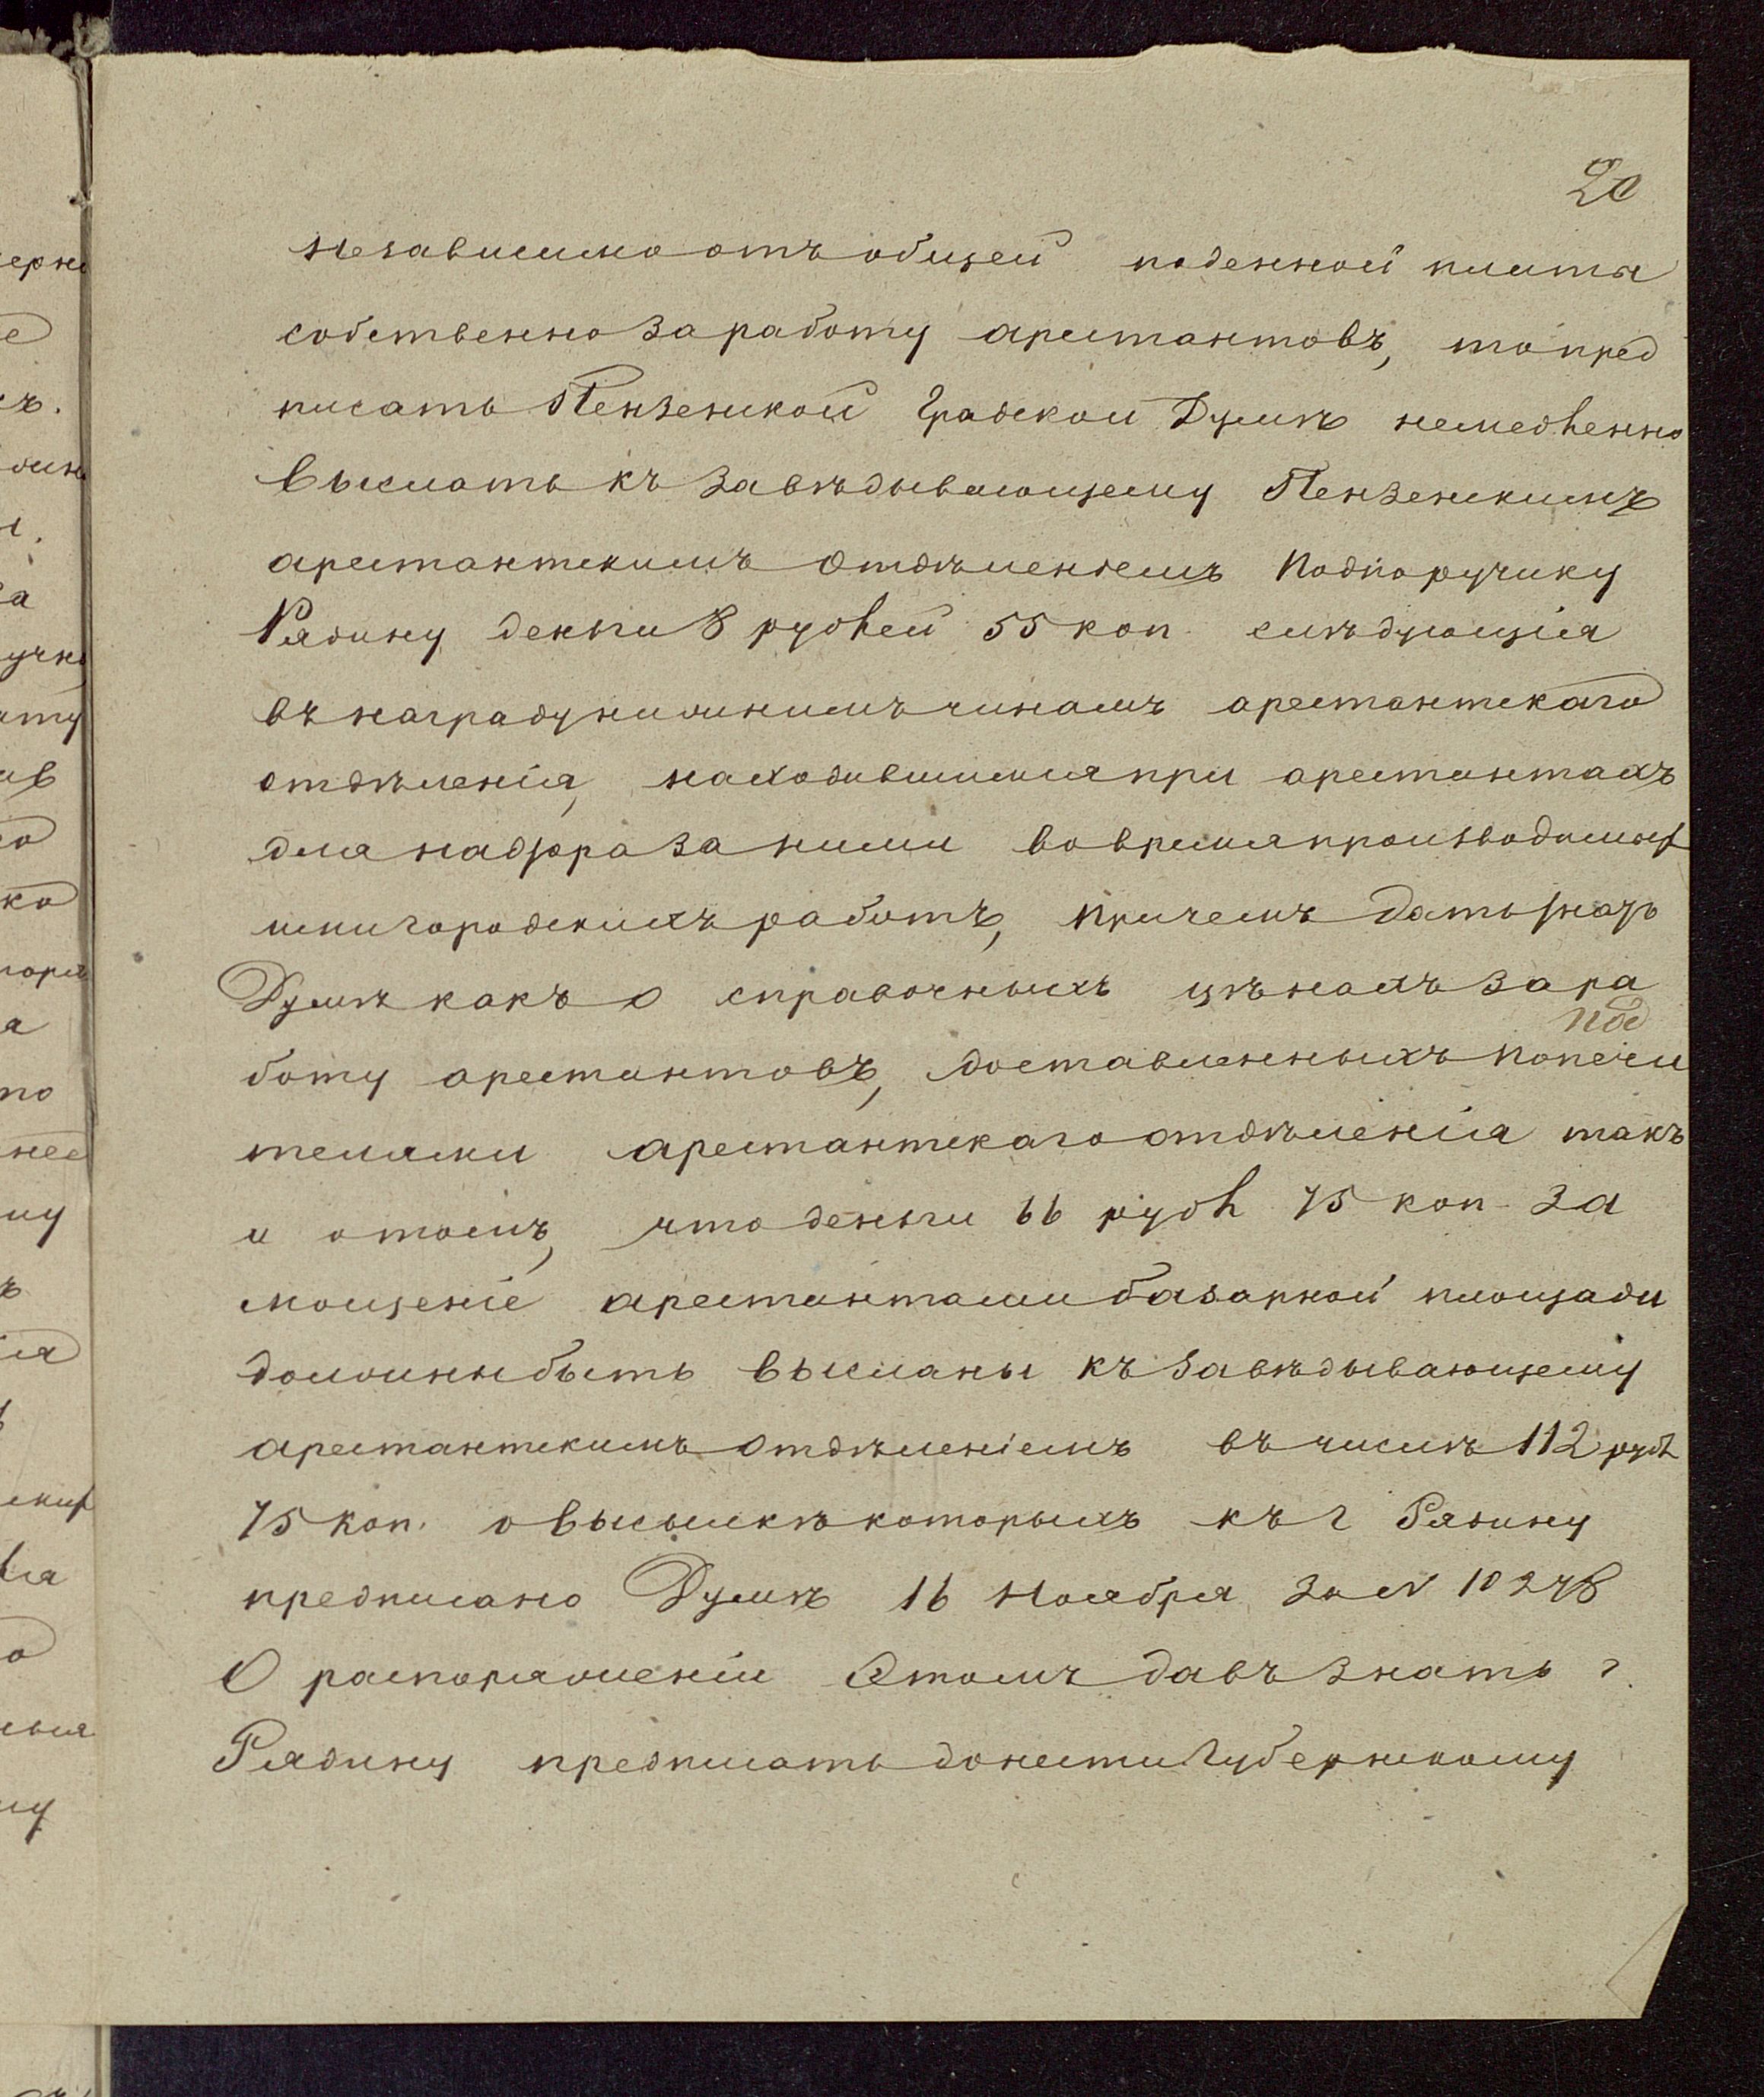 20
независимо отъ общей поденной платы
собственно за работу арестантовъ, то пред
писать Пензенской Градской Думѣ немедленно
выслать къ завѣдывающему Пензенскимъ
арестантскимъ отдѣленіемъ Подпоручику
Рядину деньги 8 рублей 55 коп. слѣдующія
въ награду нижнимъ чинамъ арестантскаго
отдѣленія, находившимися при арестантахъ
для надзора за ними во время производимых
ими городскихъ работъ, причемъ дать знать
Думѣ какъ о справочныхъ цѣнахъ за ра
под
боту арестантовъ, доставленныхъ попечи
телями арестантскаго отдѣленія такъ
и о томъ, что деньги 66 рубл 75 коп. за
мощеніе арестантами базарной площади
должны быть высланы къ завѣдывающему
арестантскимъ отдѣленіемъ въ числѣ 112 рубл
75 коп. о высылкѣ которыхъ къ г Рядину
предписано Думѣ 16 Ноября за № 10248
О распоряженіи этомъ давъ знать г.
Рядину предписать донести Губернскому
ерно
е
ъ.
а
ко
а
по
нее
ъ
ія
о